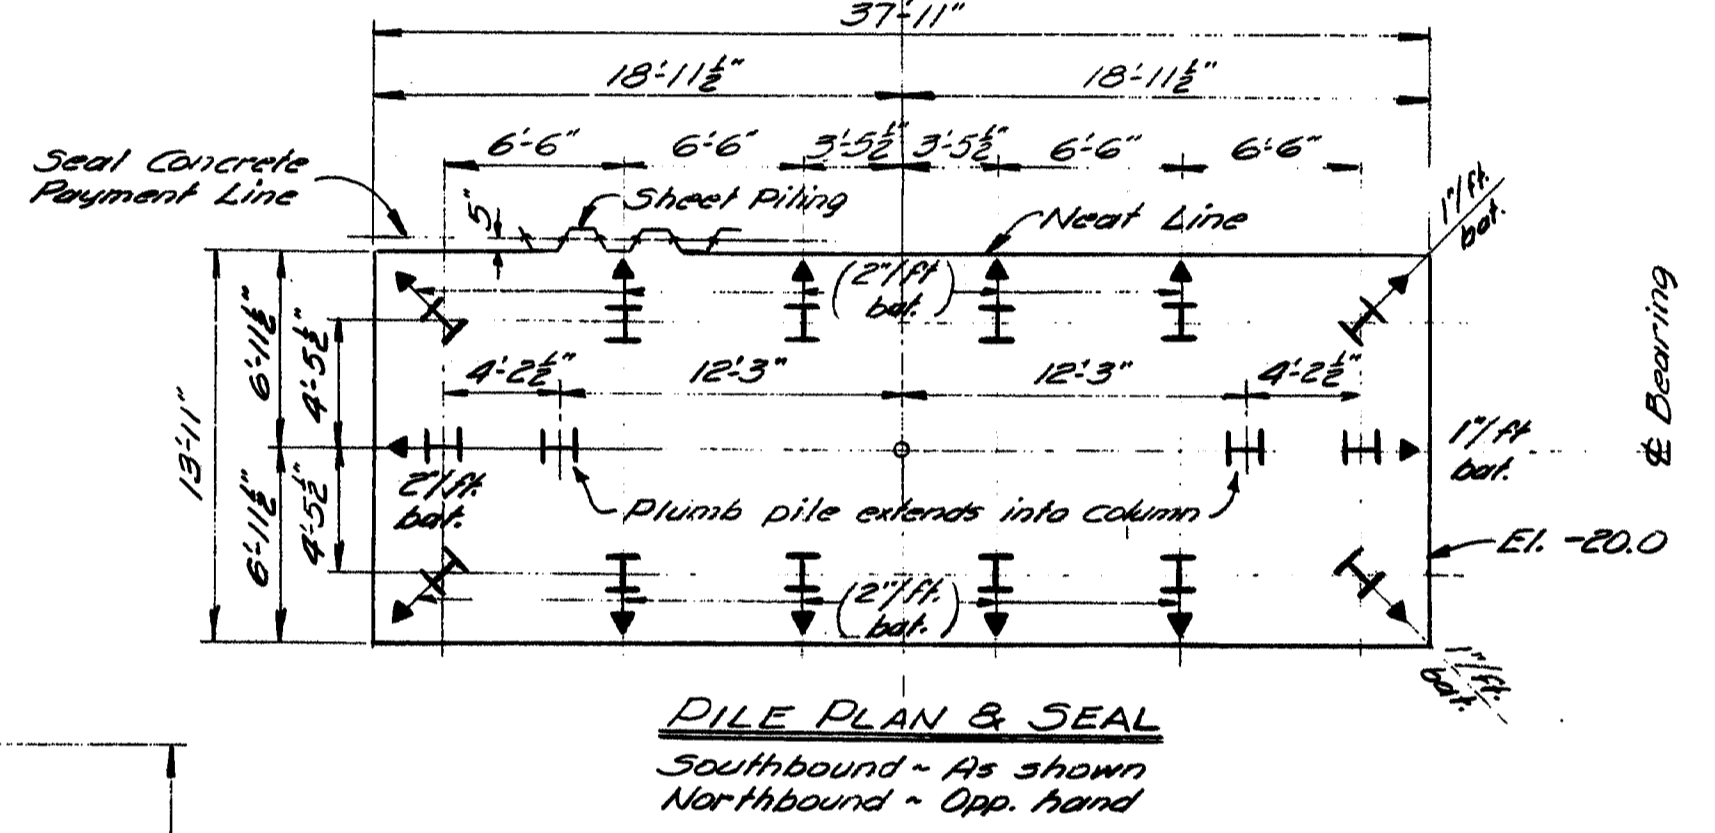 37'-11"
18'-11½" 18'-11½"
6'-6" 6'-6" 3'-5½" 3'-5½" 6'-6" 6'-6"
Seal Concrete
Payment Line
5"
Sheet Piling
Neat Line
1"/ft.
bat.
(2"/ft
bat.)
13'-11"
6'-11½"
4'-5½"
4'-2½" 12'-3" 12'-3" 4'-2½"
℄ Bearing
2"/ft.
bat.
1"/ft
bat.
Plumb pile extends into column
6'-11½"
4'-5½"
El. -20.0
(2"/ft.
bat.)
1"/ft.
bat.
PILE PLAN & SEAL
Southbound ~ As shown
Northbound ~ Opp. hand